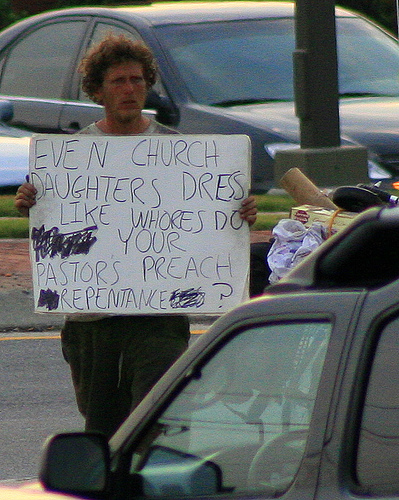 EVEN CHURCH
DAUGHTERS DRESS
LIKE WHORES DO
YOUR
PASTOR'S PREACH
REPENTANCE ?